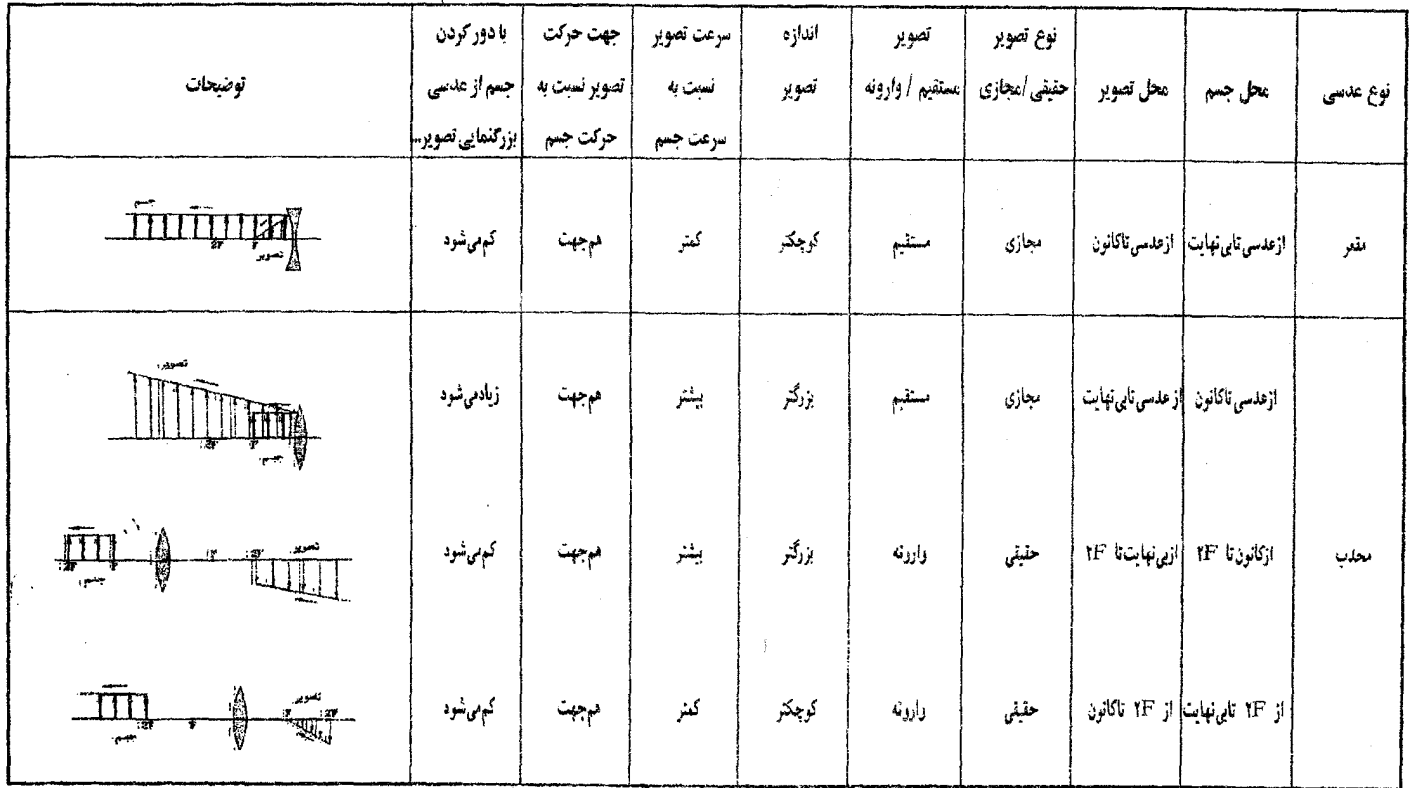 نوع عدسی
محل جسم
محل تصویر
نوع تصویر
حقیقی / مجازی
تصویر
مستقیم / وارونه
اندازه
تصویر
سرعت تصویر
نسبت به
سرعت جسم
جهت حرکت
تصویر نسبت به
حرکت جسم
با دور کردن
جسم از عدسی
بزرگنمایی تصویر...
توضیحات
مقعر
از عدسی تا بی نهایت
از عدسی تا کانون
مجازی
مستقیم
کوچکتر
کمتر
هم جهت
کم می شود
جسم
2F
F
تصویر
محدب
از عدسی تا کانون
از عدسی تا بی نهایت
مجازی
مستقیم
بزرگتر
بیشتر
هم جهت
زیاد می شود
تصویر
2F
F
جسم
از کانون تا ۲F
از بی نهایت تا ۲F
حقیقی
وارونه
بزرگتر
بیشتر
هم جهت
کم می شود
2F
جسم
F
2F
تصویر
از ۲F تا بی نهایت
از ۲F تا کانون
حقیقی
وارونه
کوچکتر
کمتر
هم جهت
کم می شود
2F
جسم
F
F
2F
تصویر